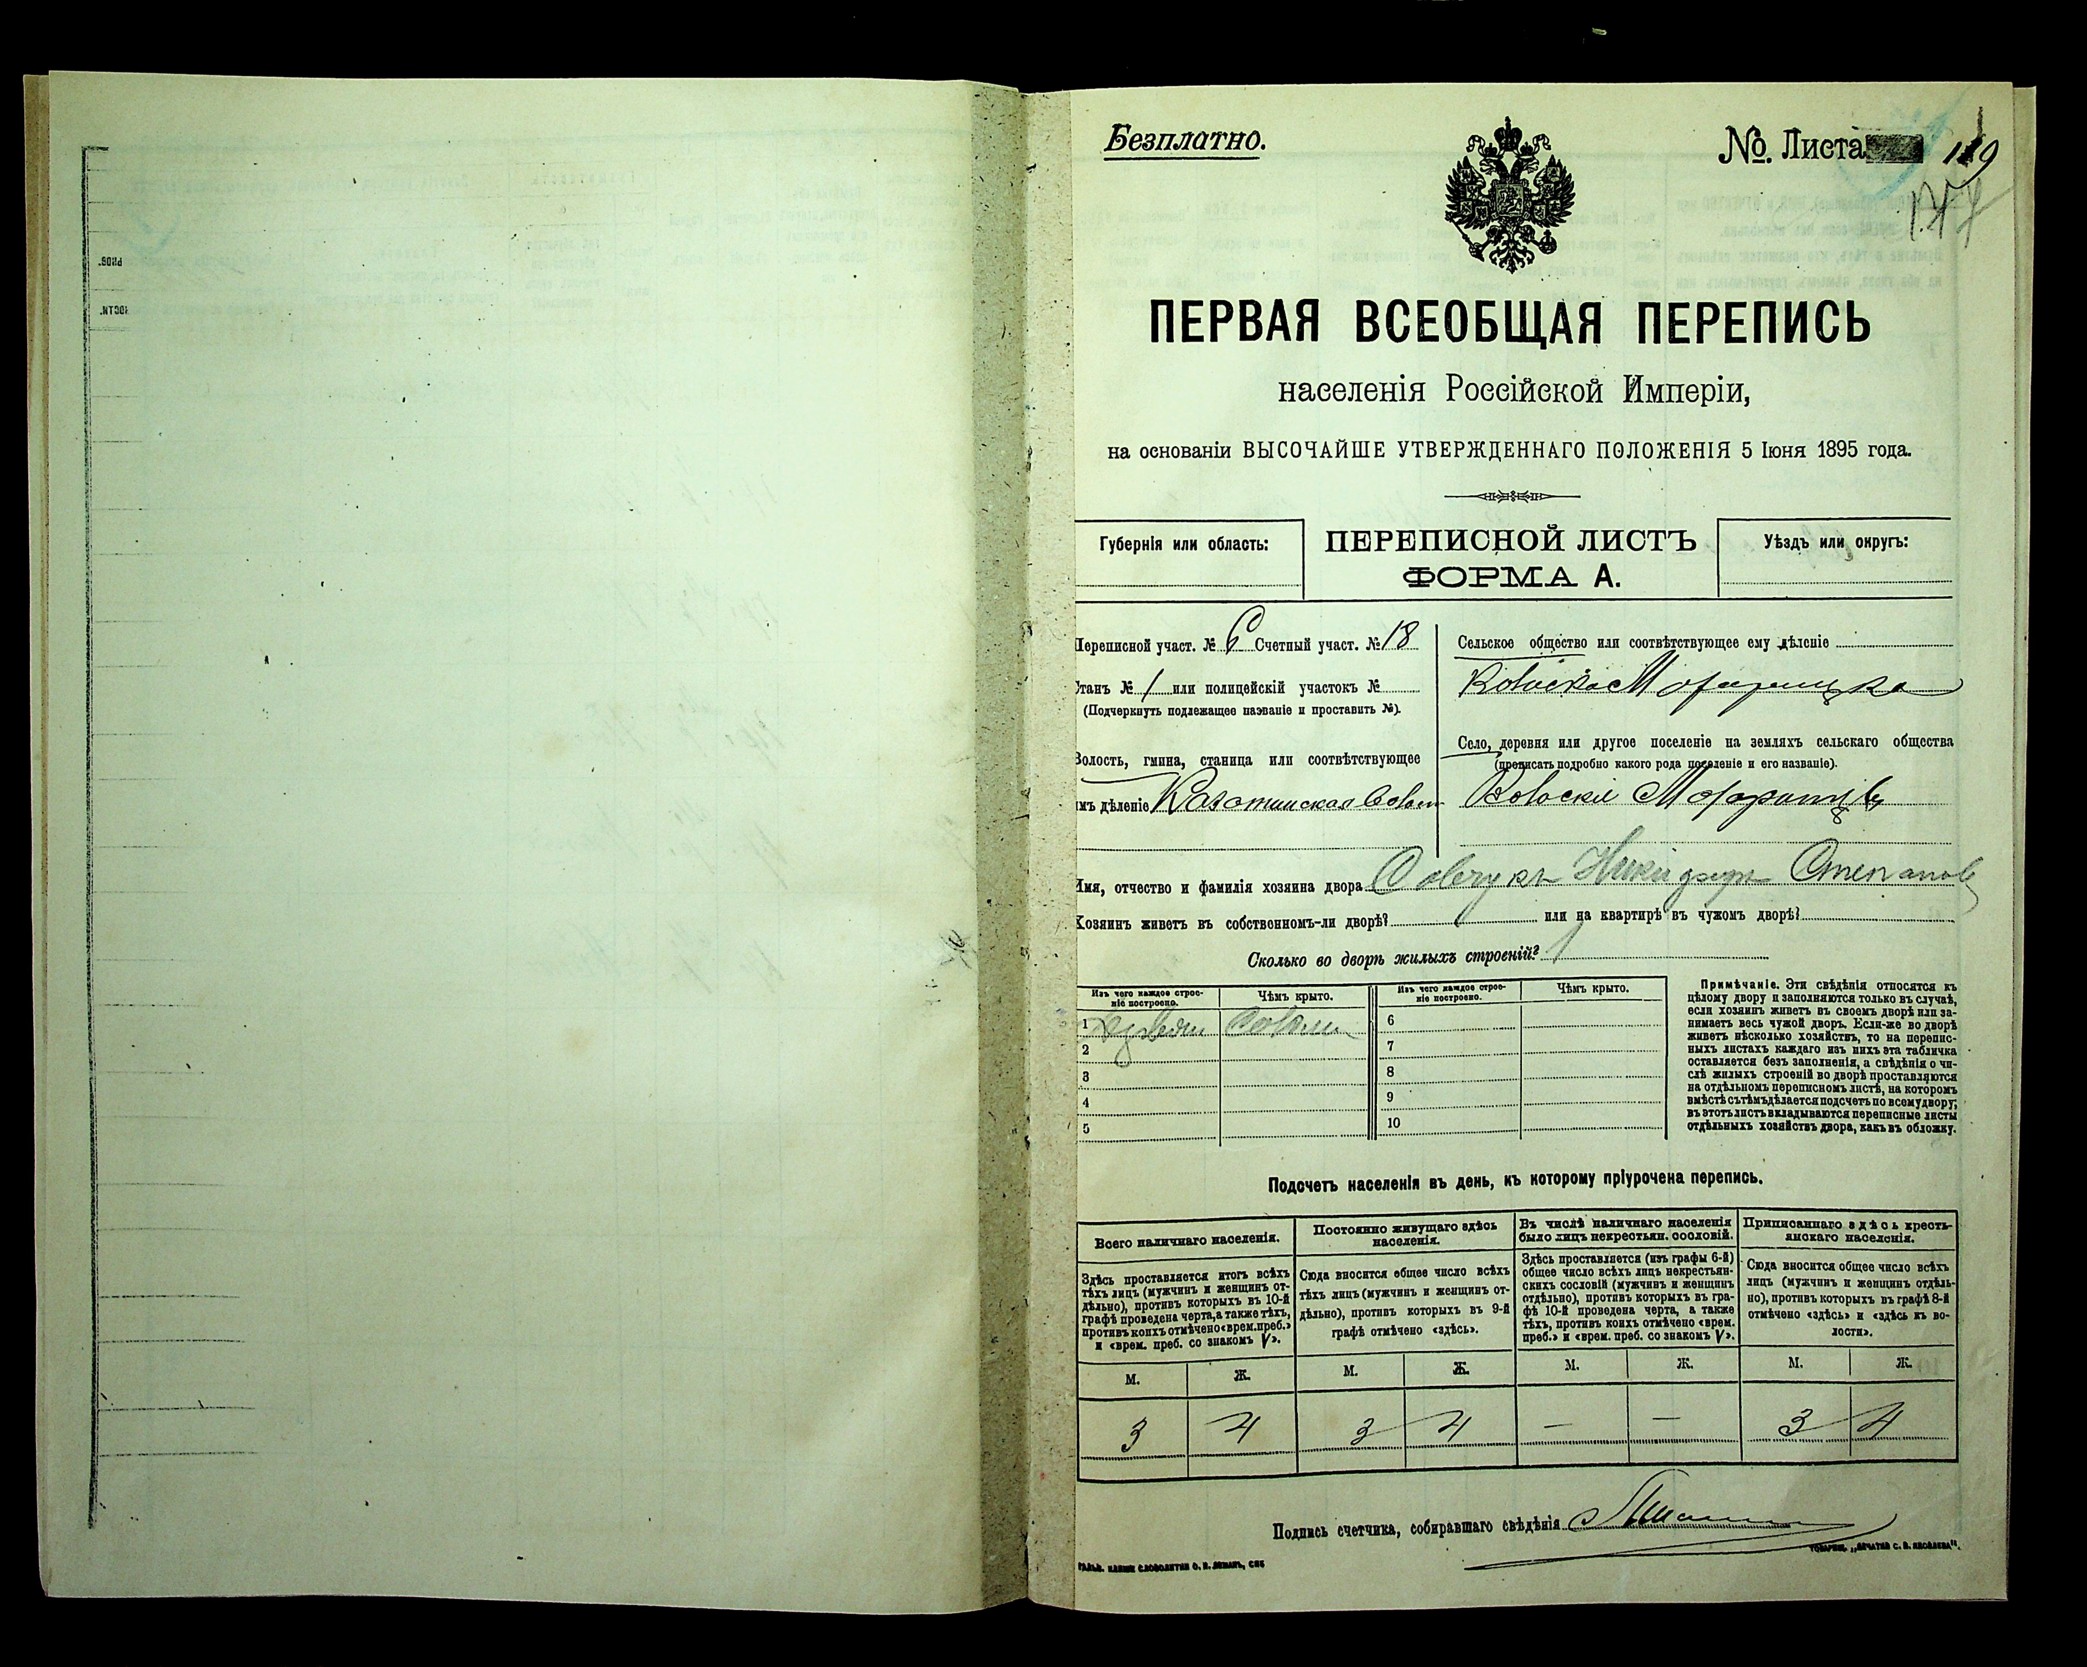 Безплатно.
№. Листа 119
ПЕРВАЯ ВСЕОБЩАЯ ПЕРЕПИСЬ
населенія Россійской Имперіи,
на основаніи ВЫСОЧАЙШЕ УТВЕРЖДЕННАГО ПОЛОЖЕНІЯ 5 Іюня 1895 года.
Губернія или область:
ПЕРЕПИСНОЙ ЛИСТЪ
ФОРМА А.
Уѣздъ или округъ:
Переписной участ. № 6 Счетный участ. № 18
Станъ № 1 или полицейскій участокъ №
(Подчеркнуть подлежащее названіе и проставить №).
Волость, гмина, станица или соотвѣтствующее
имъ дѣленіе
Сельское общество или соотвѣтствующее ему дѣленіе
Село, деревня или другое поселеніе на земляхъ сельскаго общества
(прописать подробно какого рода поселеніе и его названіе).
Имя, отчество и фамилія хозяина двора Никифоръ Степановъ
Хозяинъ живетъ въ собственномъ-ли дворѣ? или на квартирѣ въ чужомъ дворѣ?
Сколько во дворѣ жилыхъ строеній? 1
Изъ чего каждое строе-
ніе построено.
Чѣмъ крыто.
Изъ чего каждое строе-
ніе построено.
Чѣмъ крыто.
1
2
3
4
5
6
7
8
9
10
Примѣчаніе. Эти свѣдѣнія относятся къ
цѣлому двору и заполняются только въ случаѣ,
если хозяинъ живетъ въ своемъ дворѣ или за-
нимаетъ весь чужой дворъ. Если-же во дворѣ
живетъ нѣсколько хозяйствъ, то на перепис-
ныхъ листахъ каждаго изъ нихъ эта табличка
оставляется безъ заполненія, а свѣдѣнія о чи-
слѣ жилыхъ строеній во дворѣ проставляются
на отдѣльномъ переписномъ листѣ, на которомъ
вмѣстѣ съ тѣмъ дѣлается подсчетъ по всему двору;
въ этотъ листъ вкладываются переписные листы
отдѣльныхъ хозяйствъ двора, какъ въ обложку.
Подсчетъ населенія въ день, къ которому пріурочена перепись.
Всего наличнаго населенія.
Здѣсь проставляется итогъ всѣхъ
тѣхъ лицъ (мужчинъ и женщинъ от-
дѣльно), противъ которыхъ въ 10-й
графѣ проведена черта, а также тѣхъ,
противъ коихъ отмѣчено «врем. преб.»
и «врем. преб. со знакомъ V».
Постоянно живущаго здѣсь
населенія.
Сюда вносится общее число всѣхъ
тѣхъ лицъ (мужчинъ и женщинъ от-
дѣльно), противъ которыхъ въ 9-й
графѣ отмѣчено «здѣсь».
Въ числѣ наличнаго населенія
было лицъ некрестьян. сословій.
Здѣсь проставляется (изъ графы 6-й)
общее число всѣхъ лицъ некрестьян-
скихъ сословій (мужчинъ и женщинъ
отдѣльно), противъ которыхъ въ гра-
фѣ 10-й проведена черта, а также
тѣхъ, противъ коихъ отмѣчено «врем.
преб.» и «врем. преб. со знакомъ V».
Приписаннаго здѣсь кресть-
янскаго населенія.
Сюда вносится общее число всѣхъ
лицъ (мужчинъ и женщинъ отдѣль-
но), противъ которыхъ въ графѣ 8-й
отмѣчено «здѣсь» и «здѣсь къ во-
лости».
М. Ж. М. Ж. М. Ж. М. Ж.
3 4 3 4 — — 3 4
Подпись счетчика, собиравшаго свѣдѣнія